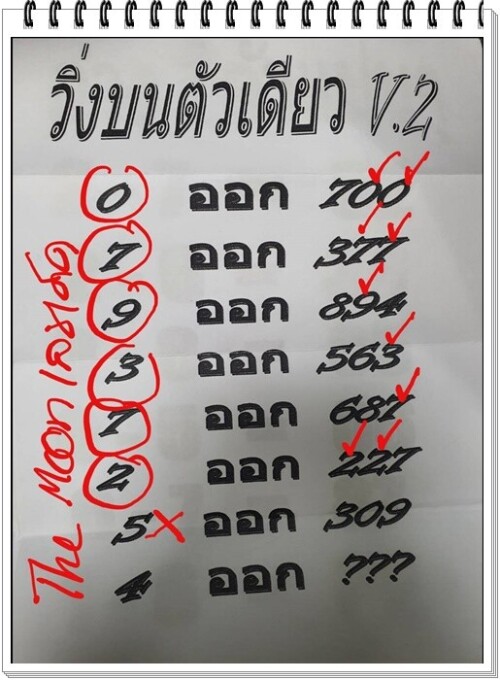 วิ่งบนตัวเดียว V.2
0 ออก 700
7 ออก 377
9 ออก 894
3 ออก 563
7 ออก 687
2 ออก 227
5 X ออก 309
4 ออก ???
The Moon